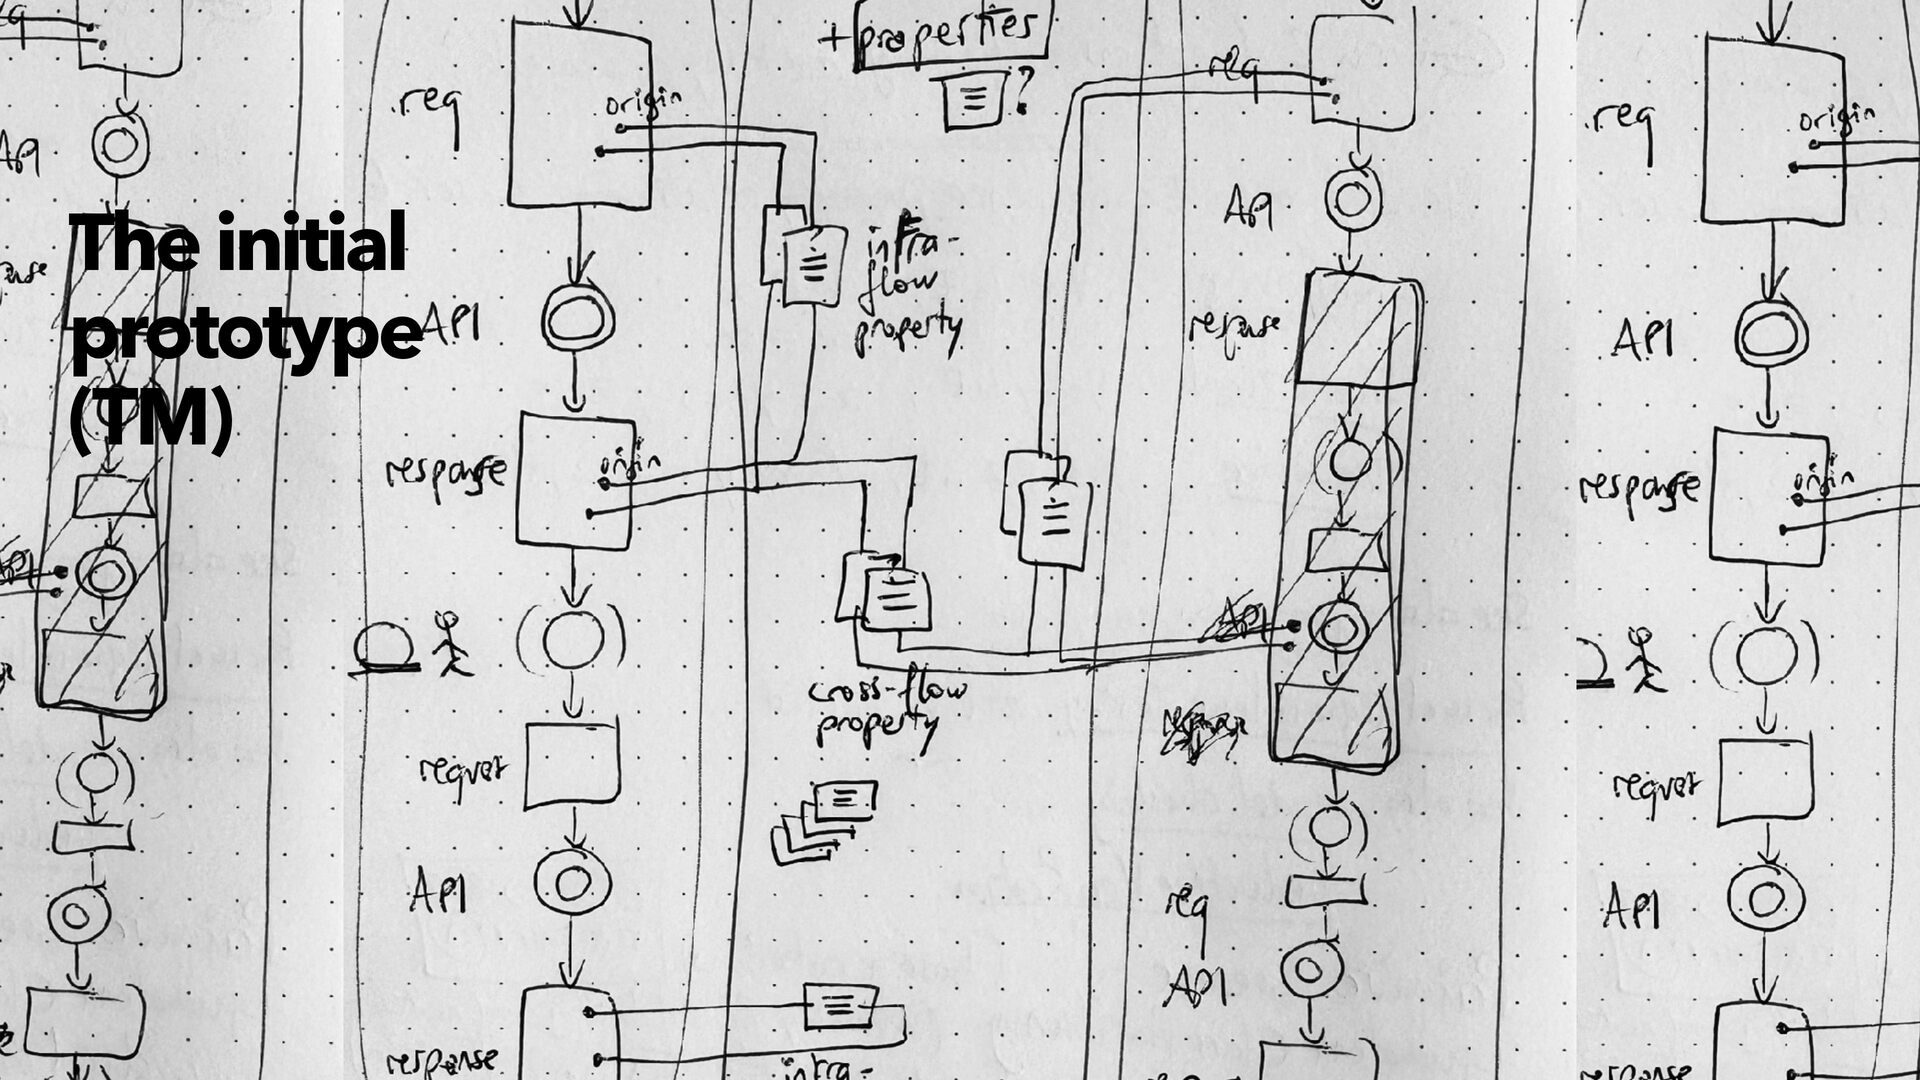 The initial
prototype
(TM)
+properties
?
req
origin
API
infra-
flow
property
response
origin
cross-flow
property
request
API
response
intra-
req
API
response
API
req
API
req
origin
API
response
origin
request
API
response
API